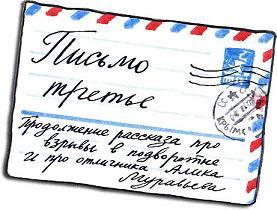 Письмо
третье
Продолжение рассказа про
взрывы в подворотне
и про отличника Алика
Муравьева